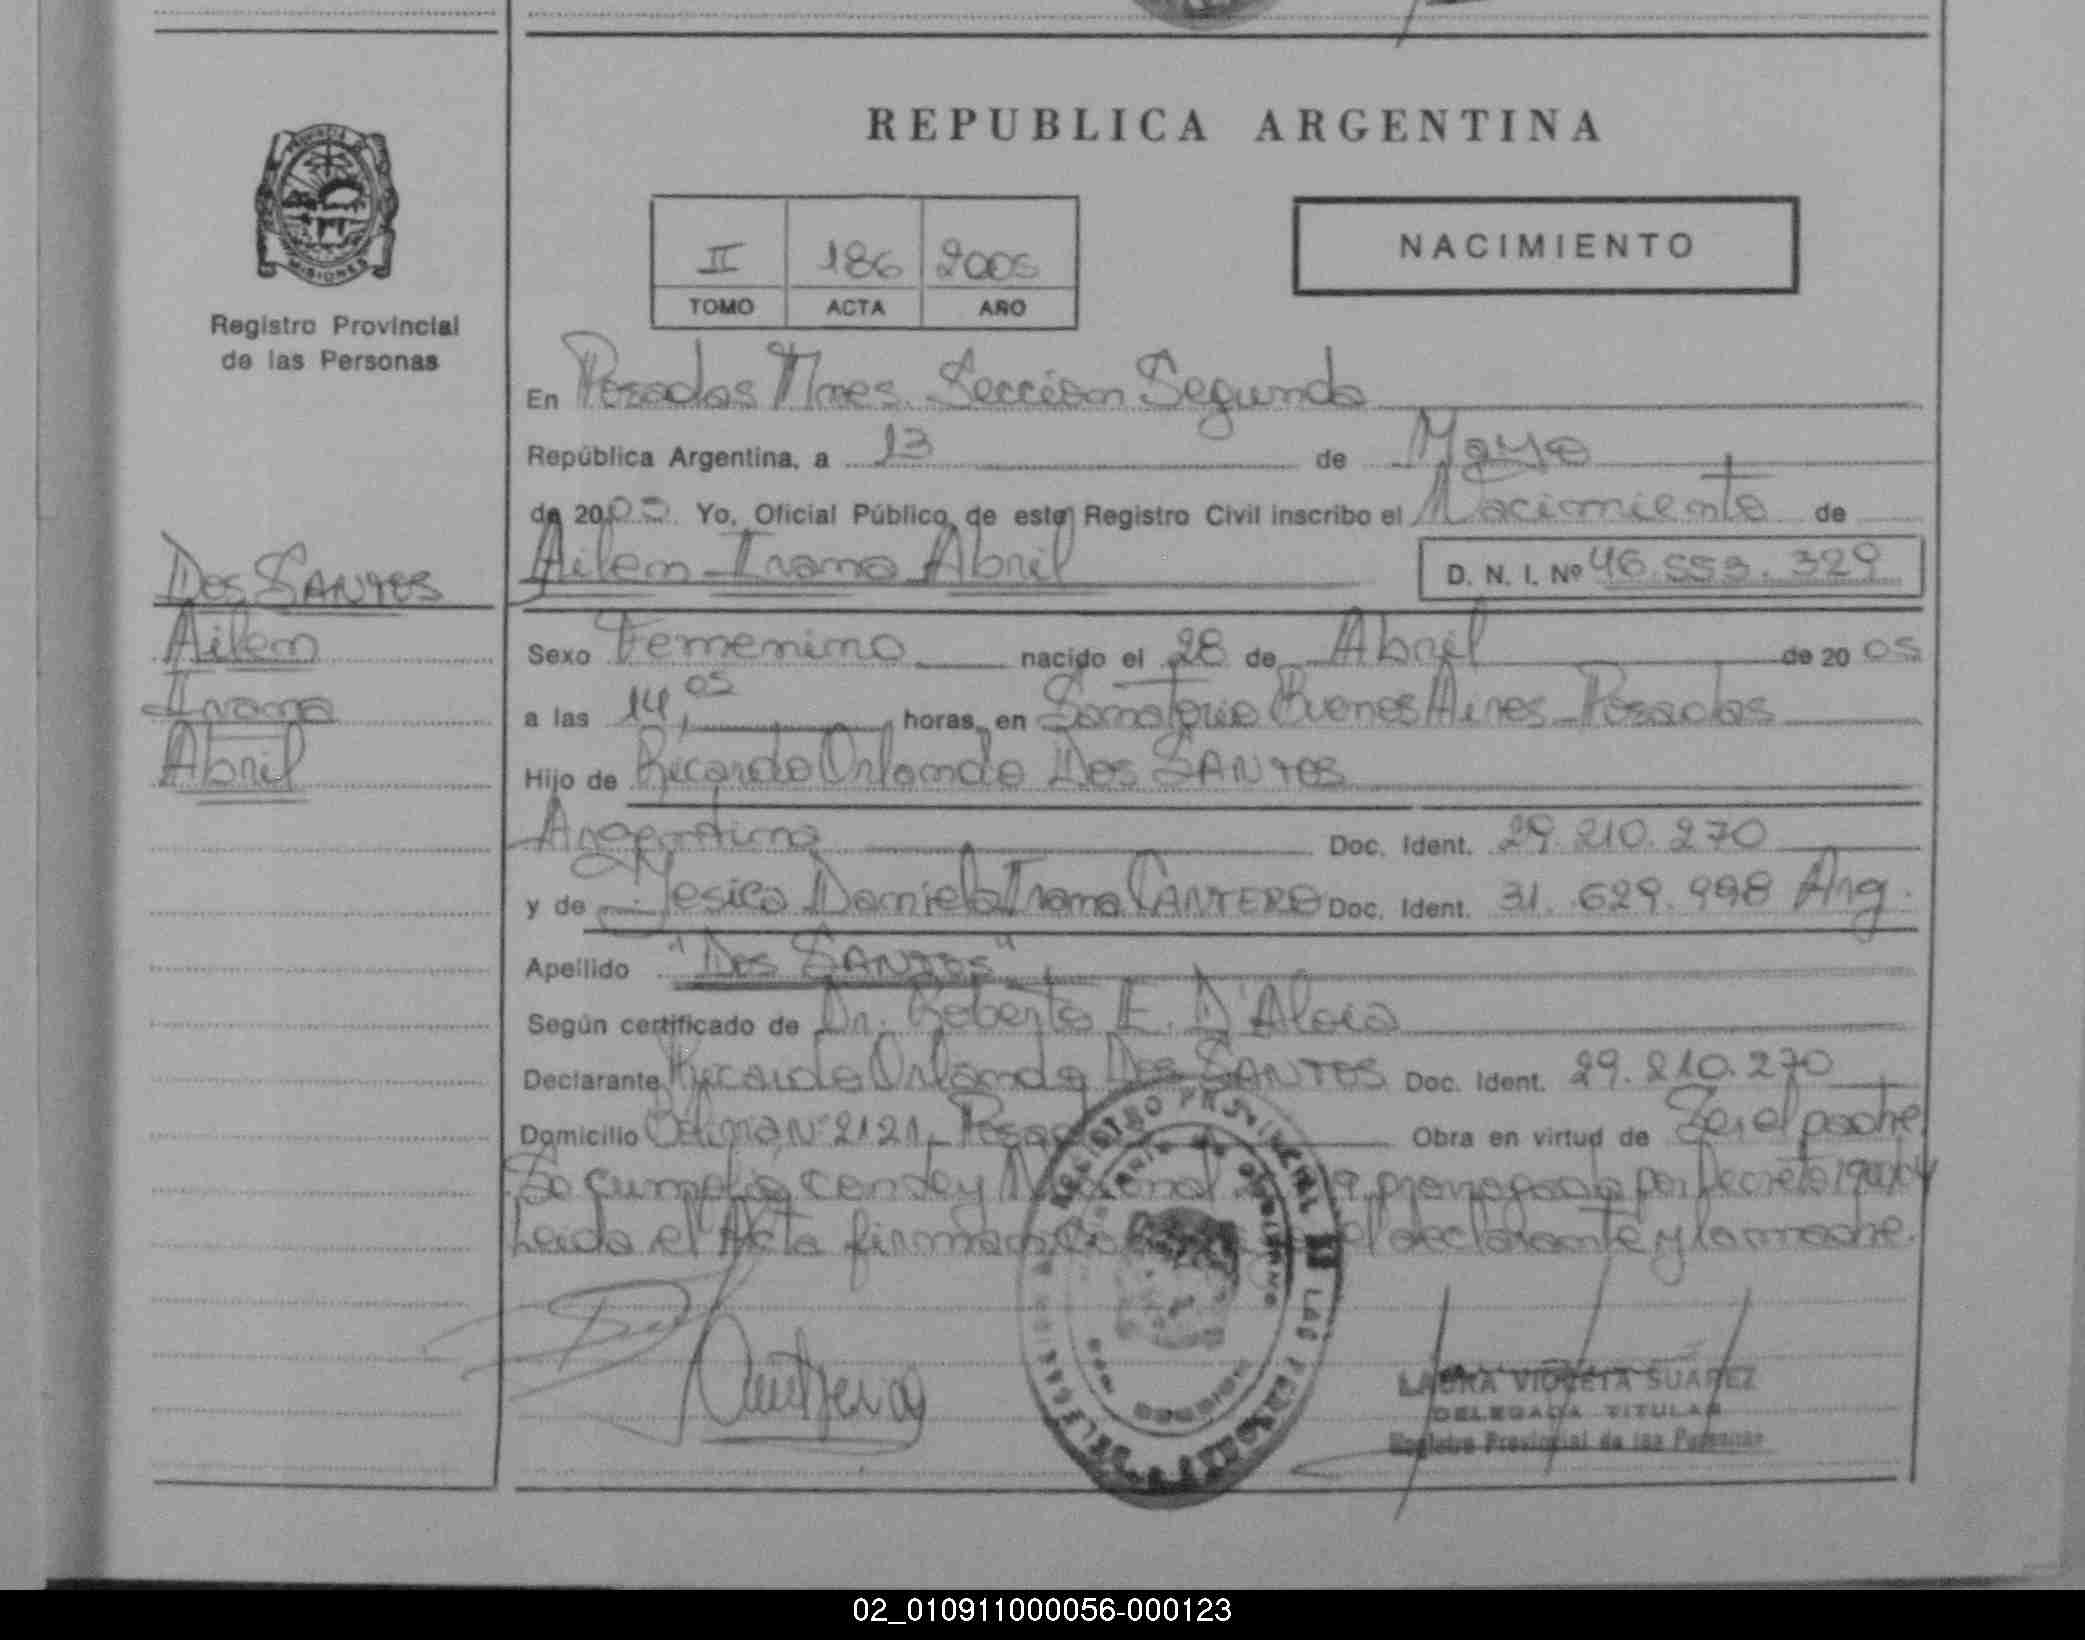 REPUBLICA ARGENTINA
PROVINCIA DE
MISIONES
Registro Provincial
de las Personas
II 186 2005
TOMO ACTA AÑO
NACIMIENTO
En Posadas Mnes. Sección Segunda
República Argentina, a 13 de Mayo
de 2005 Yo, Oficial Público de este Registro Civil inscribo el Nacimiento de
Ailem Irama Abril D. N. I. Nº 46.553.329
Dos SANTOS
Ailem
Irama
Abril
Sexo Femenino nacido el 28 de Abril de 20 05
a las 14,05 horas, en Sanatorio Buenos Aires Posadas
Hijo de Ricardo Orlando Dos SANTOS
Argentino Doc. Ident. 29.210.270
y de Yesica Daniela Irama CANTERO Doc. Ident. 31.629.998 Arg.
Apellido "Dos SANTOS"
Según certificado de Dr. Roberto E. D'Aloia
Declarante Ricardo Orlando Dos SANTOS Doc. Ident. 29.210.270
Domicilio Nº 2121 Obra en virtud de Ser el padre
Se cumplio con Ley prorrogada por Decreto
Leida el Acta firman el declarante y la madre.
REGISTRO PROVINCIAL DE LAS PERSONAS
MISIONES
Cantero
LAURA VIOLETA SUAREZ
DELEGADA TITULAR
Registro Provincial de las Personas
02_010911000056-000123